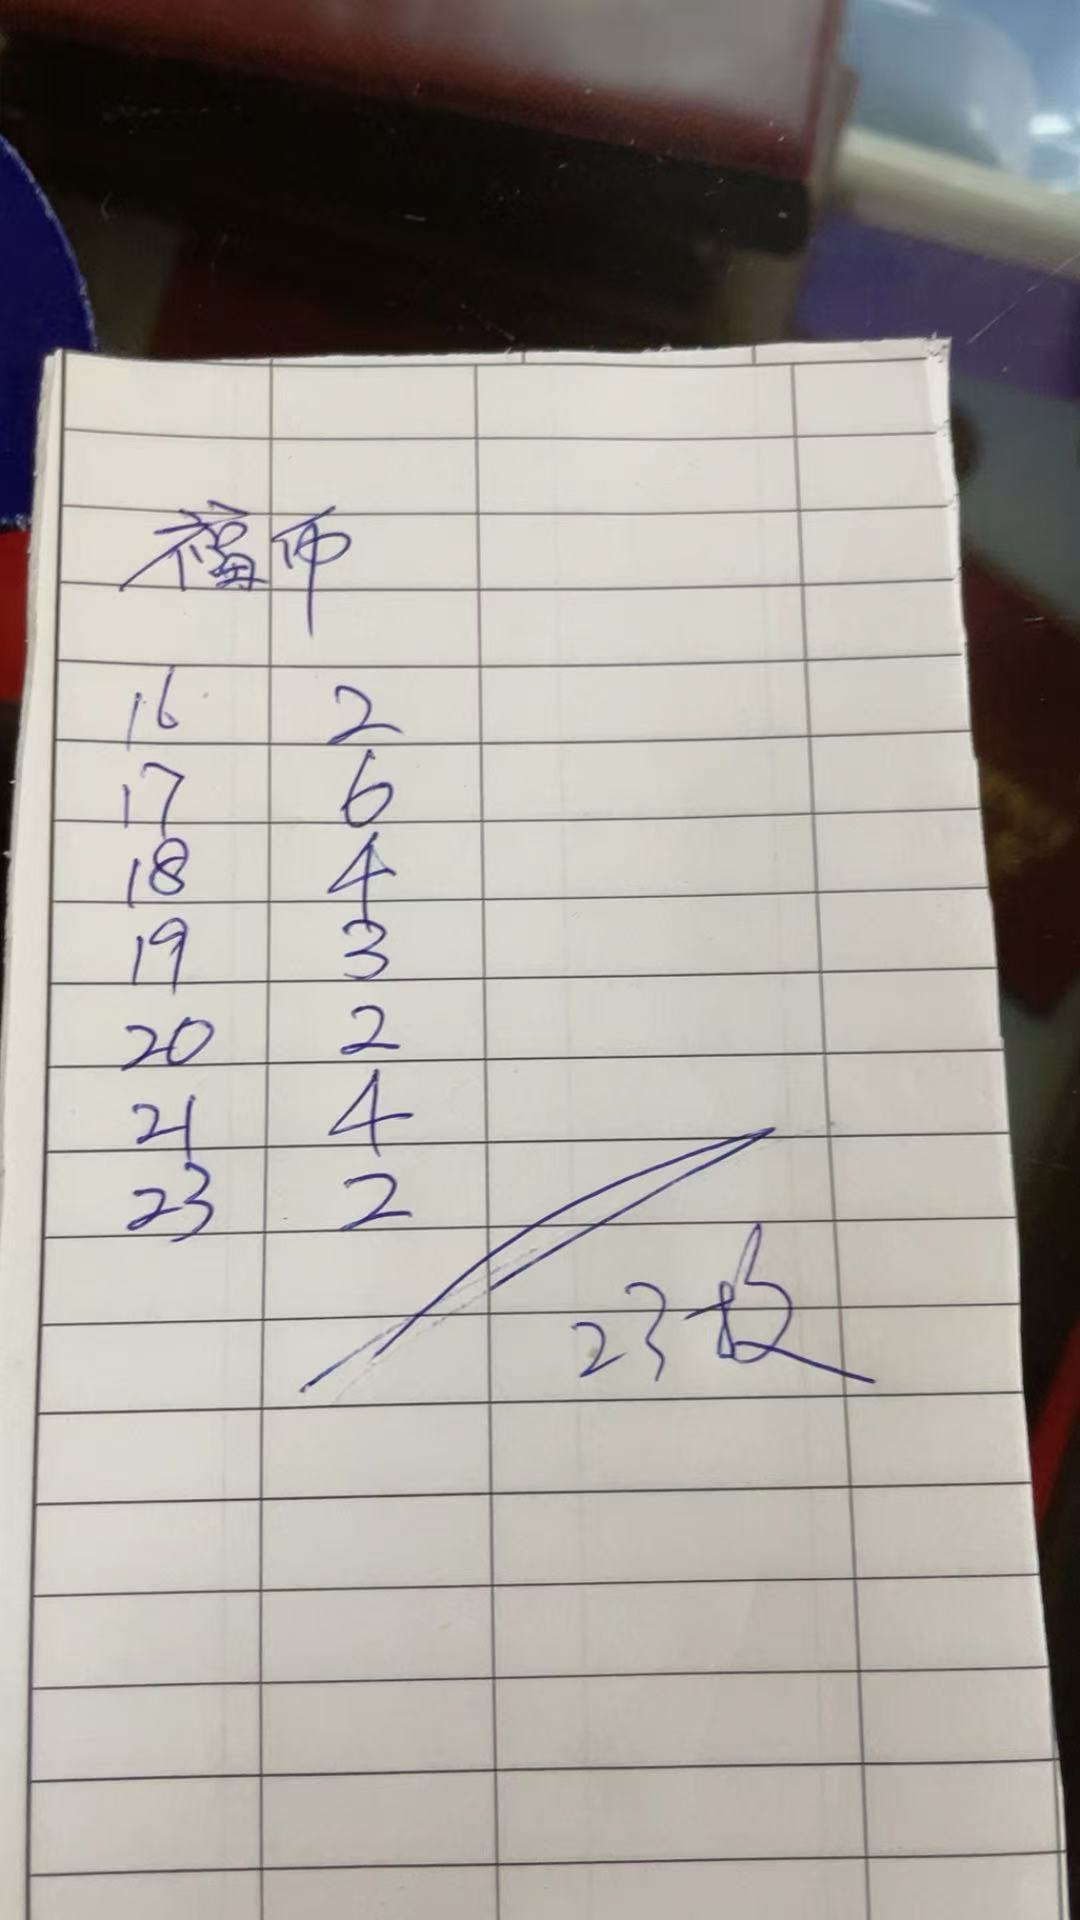 福师
16 2
17 6
18 4
19 3
20 2
21 4
23 2
23枚